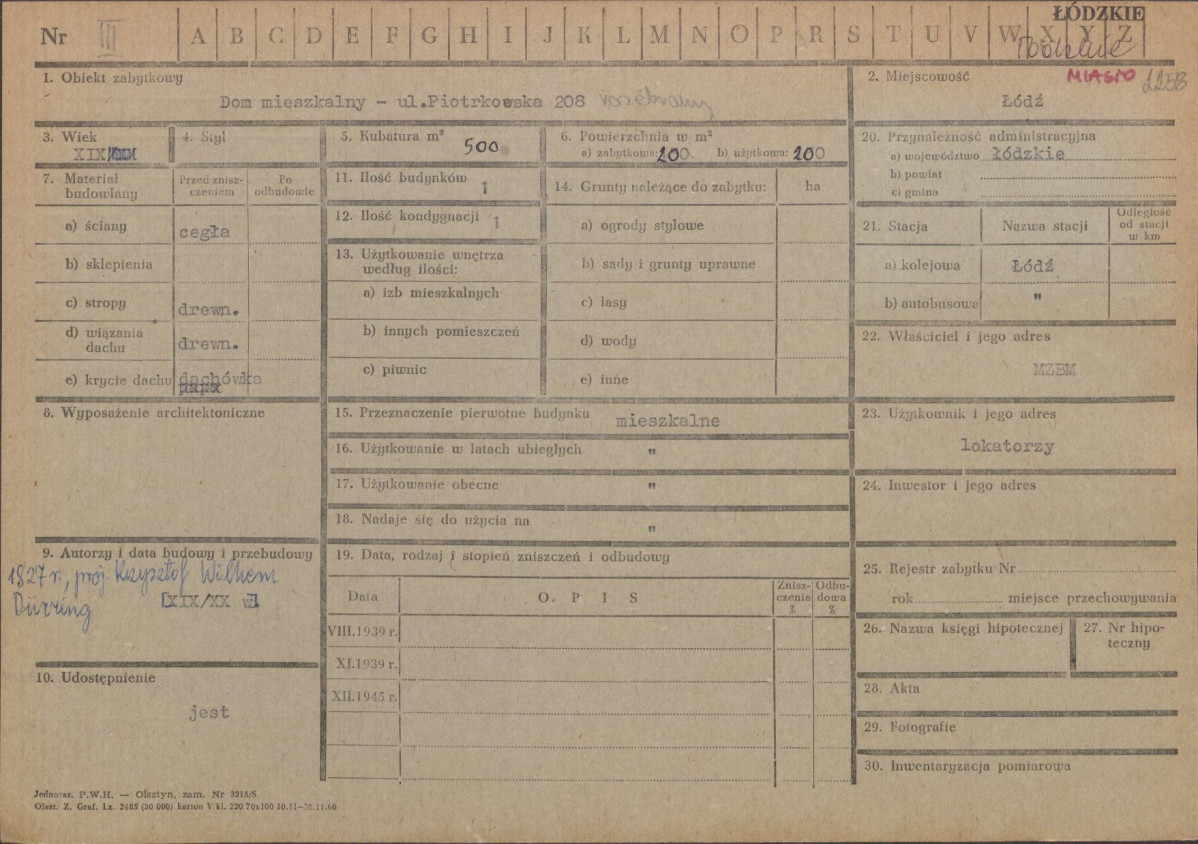 ŁÓDZKIE
Nr III A B C D E F G H I J K L M N O P R S T U V W X Y Z
MIASTO
1. Obiekt zabytkowy
Dom mieszkalny - ul.Piotrkowska 208 rozebrany
2. Miejscowość
Łódź
3. Wiek
XIX
4. Styl
5. Kubatura m³
500
6. Powierzchnia w m²
a) zabytkowa: 200 b) użytkowa: 200
7. Materiał budowlany
Przed znisz-
czeniem
Po
odbudowie
a) ściany cegła
b) sklepienia
c) stropy drewn.
d) wiązania
dachu drewn.
e) krycie dachu dachówka
papa
8. Wyposażenie architektoniczne
9. Autorzy i data budowy i przebudowy
1827 r., proj. Krzysztof Wilhem
Dürring [XIX/XX w]
10. Udostępnienie
jest
11. Ilość budynków
1
12. Ilość kondygnacji 1
13. Użytkowanie wnętrza
według ilości:
a) izb mieszkalnych
b) innych pomieszczeń
c) piwnic
14. Grunty należące do zabytku: ha
a) ogrody stylowe
b) sady i grunty uprawne
c) lasy
d) wody
e) inne
15. Przeznaczenie pierwotne budynku mieszkalne
16. Użytkowanie w latach ubiegłych "
17. Użytkowanie obecne "
18. Nadaje się do użycia na "
19. Data, rodzaj i stopień zniszczeń i odbudowy
Data
O P I S
Znisz-
czenia
%
Odbu-
dowa
%
VIII.1939 r.
XI.1939 r.
XII.1945 r.
20. Przynależność administracyjna
a) województwo łódzkie
b) powiat
c) gmina
21. Stacja
Nazwa stacji
Odległość
od stacji
w km
a) kolejowa Łódź
b) autobusowa "
22. Właściciel i jego adres
MZBM
23. Użytkownik i jego adres
lokatorzy
24. Inwestor i jego adres
25. Rejestr zabytku Nr
rok miejsce przechowywania
26. Nazwa księgi hipotecznej
27. Nr hipo-
teczny
28. Akta
29. Fotografie
30. Inwentaryzacja pomiarowa
Jednoraz. P.W.H. — Olsztyn, zam. Nr 3218/S
Olszt. Z. Graf. Lz. 2485 (20 000) karton V kl. 220 70x100 10.11—30.11.60